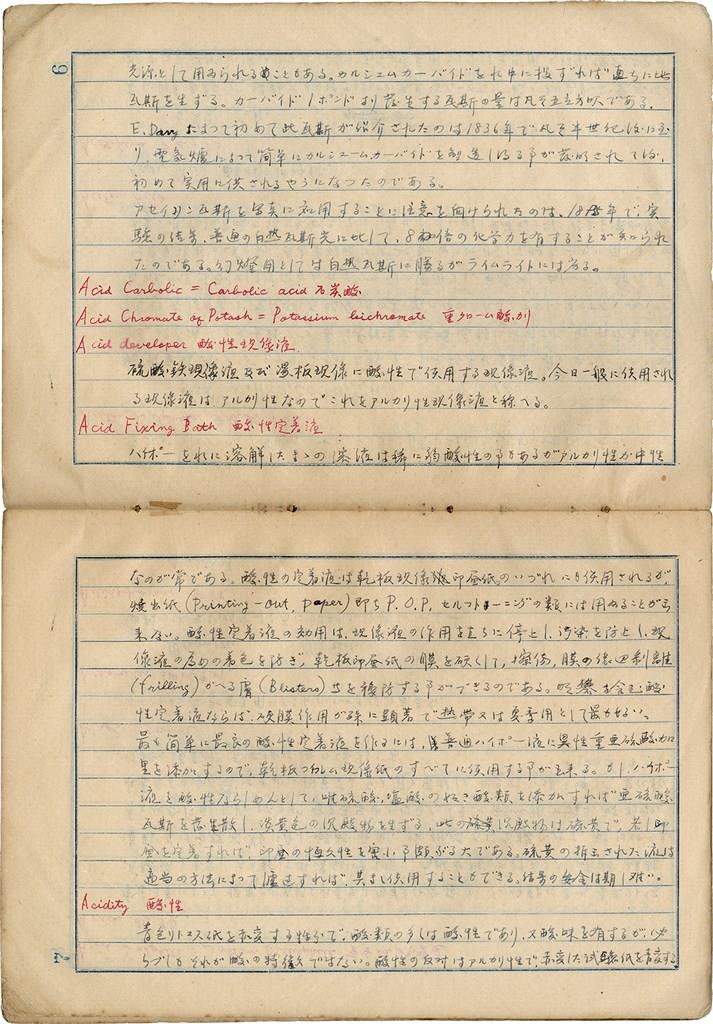 6
光源として用ゐられることもある。カルシュムカーバイドを水中に投ずれば直ちに此
瓦斯を生ずる。カーバイド1ポンドより発生する瓦斯の量は凡そ五立方呎である。
E. Davy によつて初めて此瓦斯が紹介されたのは1836年で凡そ半世紀後に至
り、電気炉によつて簡単にカルシュームカーバイドを製造し得る事が発明されて後、
初めて実用に供されるやうになつたのである。
アセイリン瓦斯を写真に応用することに注意を向けられたのは、年で、実
験の結果、普通の白熱瓦斯光に比して、倍の化学力を有することが知られ
たのである。幻燈用としては白熱瓦斯に勝るがライムライトには劣る。
Acid Carbolic = Carbolic acid 石炭酸
Acid Chromate of Potash = Potassium bichromate 重クローム酸カリ
Acid developer 酸性現像液
硫酸鉄現像液及び湿板現像に酸性で使用する現像液。今日一般に使用され
る現像液はアルカリ性なのでこれをアルカリ性現像液と称へる。
Acid Fixing Bath 酸性定着液
ハイポーを水に溶解したまゝの溶液は稀に弱酸性の事もあるがアルカリ性か中性
なのが常である。酸性の定着液は乾板現像印画紙のいづれにも使用されるが、
焼出紙 (Printing-out, paper) 即ち P.O.P. セルフトーニングの類には用ゐることが出
来ない。酸性定着液の効用は、現像液の作用を直ちに停止し、汚染を防止し、現
像液の為めの着色を防ぎ、乾板印画紙の膜を硬くして、擦傷、膜の剥離性
(frilling) かへる膚 (Blisters) 等を予防する事ができるのである。明礬を含む酸
性定着液ならば、硬膜作用が殊に顕著で熱帯又は夏季用として最もよい。
最も簡単に最良の酸性定着液を作るには、普通ハイポー液に異性重亜硫酸加
里を添加するので、乾板フヰルム現像紙のすべてに使用する事が出来る。もし、ハイポー
液を酸性ならしめんとして、硫酸、塩酸の如き酸類を添加すれば亜硫酸
瓦斯を発生散し、淡黄色の沈殿物を生ずる、此の沈殿物は硫黄で、若し印
画を定着すれば印画の恒久性を害し事頗ぶる大である。硫黄の析出された液は
適当の方法によつて濾過すれば、其まし使用することができる。結果の安全は期し難い。
Acidity 酸性
青色リトマス紙を赤変する性分で、酸類の多くは酸性であり、又酸味を有するが、必
らずしもそれが酸の特徴ではない。酸性の反対はアルカリ性で、赤変した試験紙を青変する
7